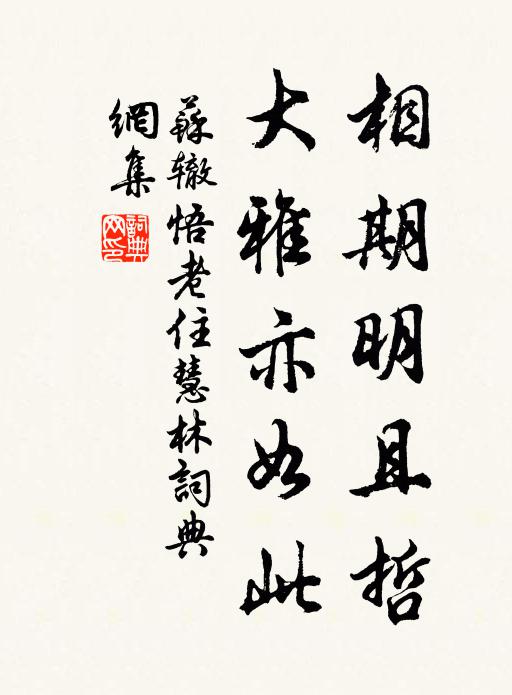 相期明且哲
大雅亦如此
蘇辙悟老住慧林詞典
網集
詞典
网印